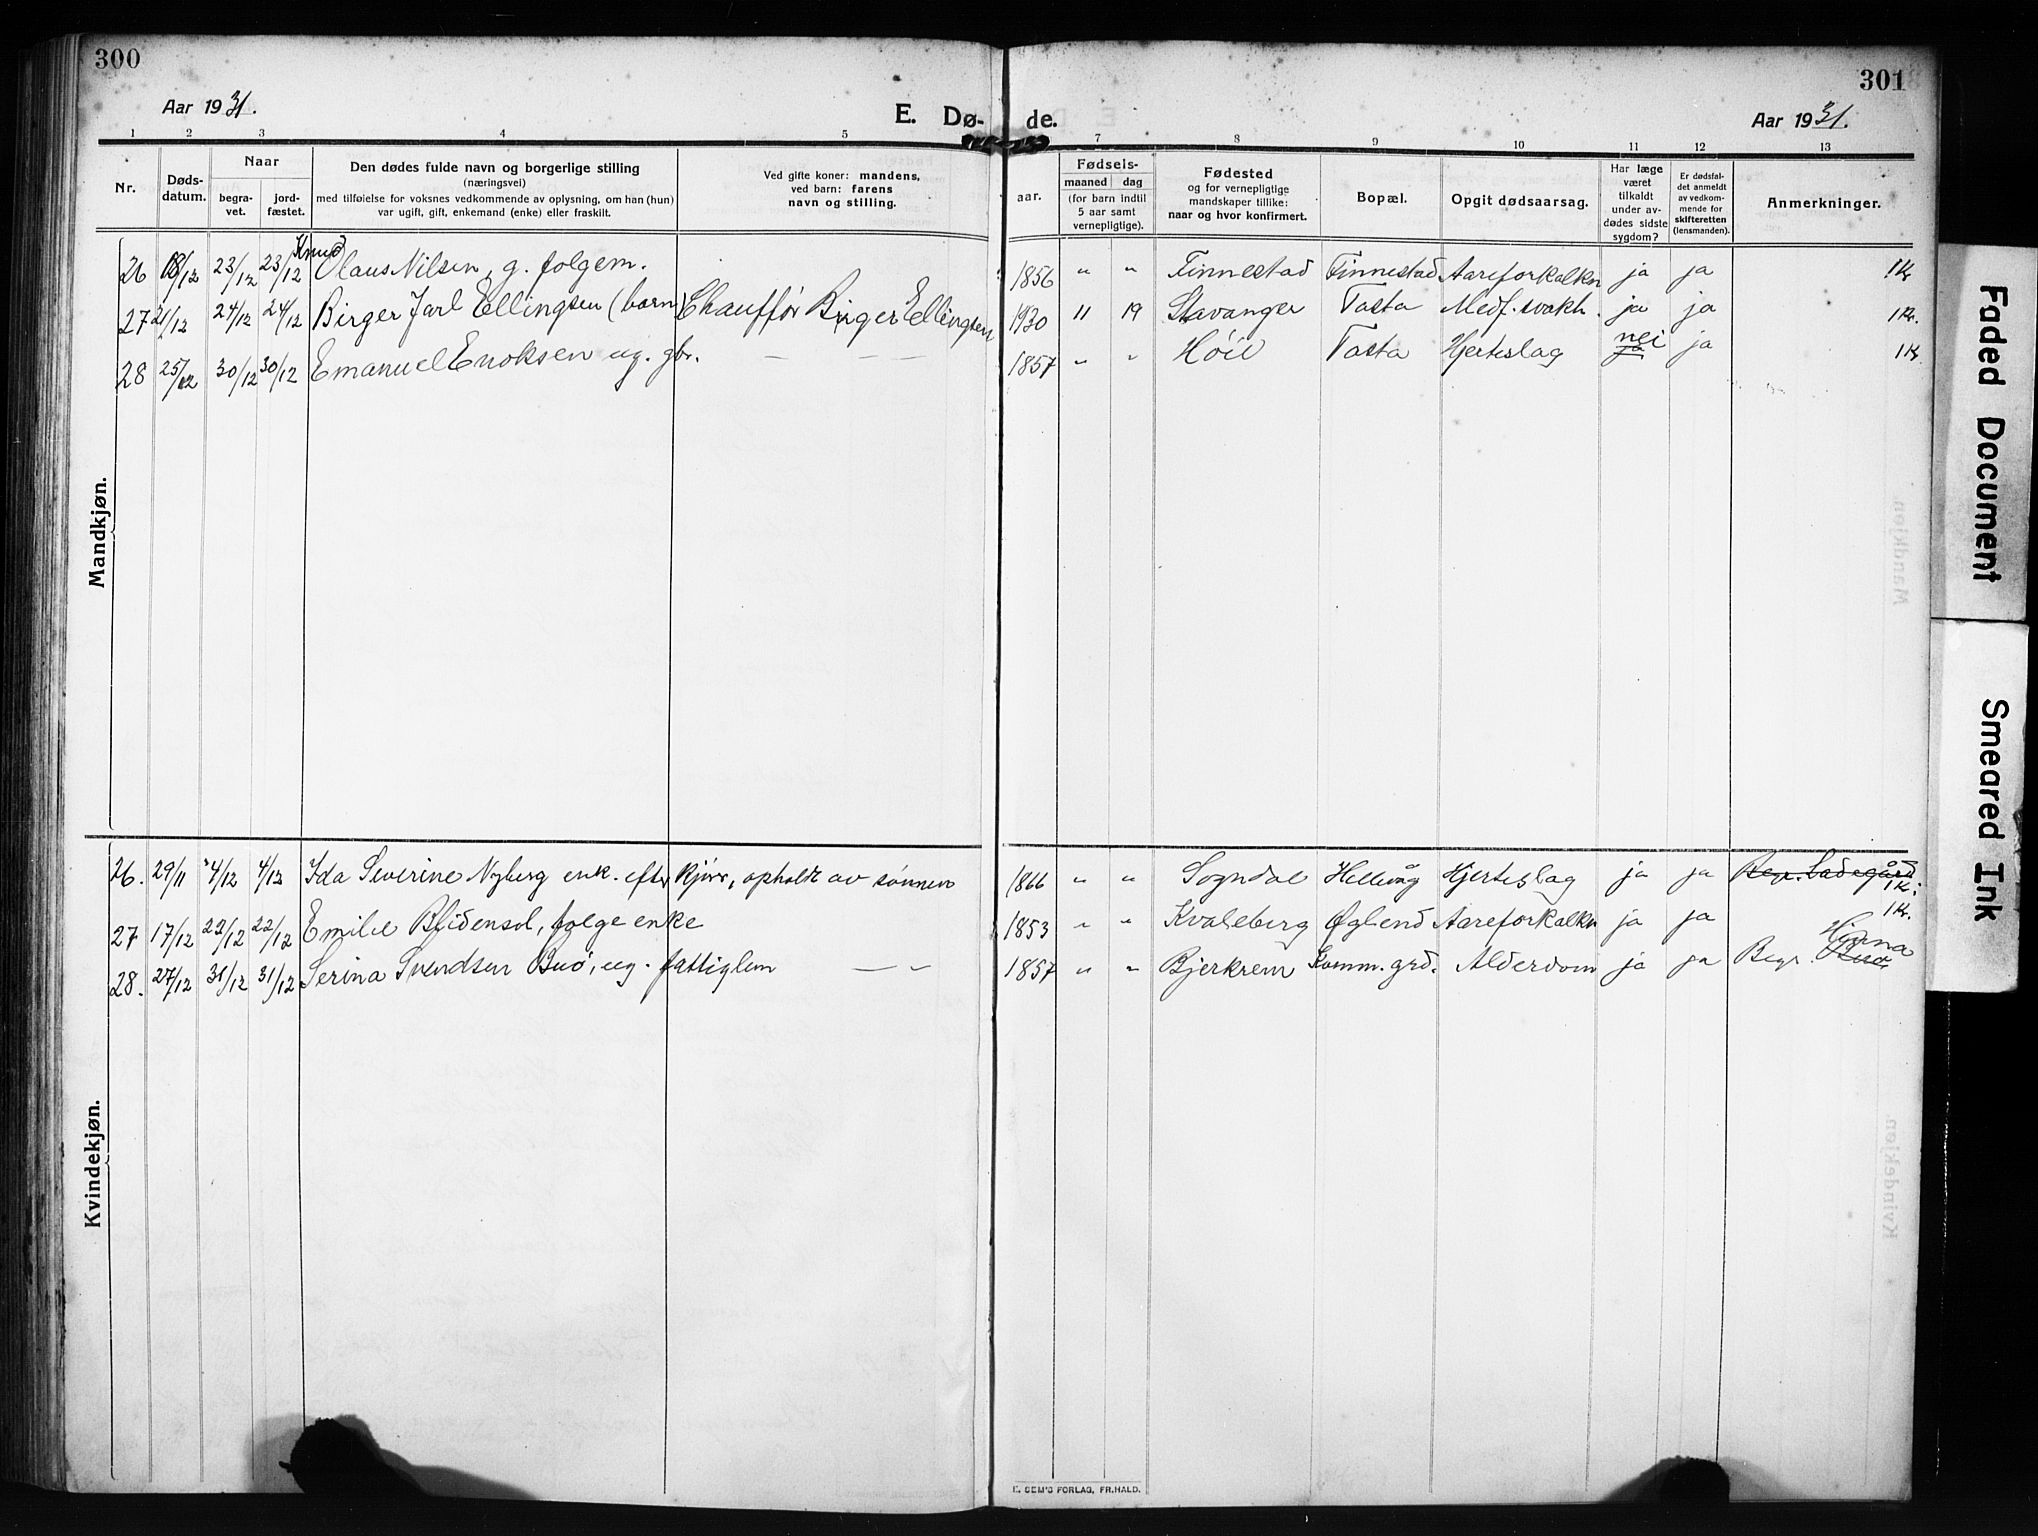 300
301
Aar 1931.
E. Dø- de.
Aar 1931.
1 2 3 4 5 7 8 9 10 11 12 13
Nr.
Døds-
datum.
Naar
begra-
vet.
jord-
fæstet.
Den dødes fulde navn og borgerlige stilling
(næringsvei)
med tilføielse for voksnes vedkommende av oplysning, om han (hun)
var ugift, gift, enkemand (enke) eller fraskilt.
Ved gifte koner: mandens,
ved barn: farens
navn og stilling.
aar.
Fødsels-
maaned dag
(for barn indtil
5 aar samt
vernepligtige).
Fødested
og for vernepligtige
mandskaper tillike:
naar og hvor konfirmert.
Bopæl.
Opgit dødsaarsag.
Har læge
været
tilkaldt
under av-
dødes sidste
sygdom?
Er dødsfal-
det anmeldt
av vedkom-
mende for
skifteretten
(lensmanden).
Anmerkninger.
Mandkjøn.
Knud
26 18/12 23/12 23/12 Olaus Nilsen, g. folgem. 1856 " " Finnestad Finnestad Aareforkalkn ja ja 1 Kr
27 21/12 24/12 24/12 Birger Jarl Ellingsen (barn) Chauffør Birger Ellingsen 1930 11 19 Stavanger Tasta Medf. svakh. ja ja 1 Kr.
28 25/12 30/12 30/12 Emanuel Enoksen ug. gbr. — — — 1857 " " Høie Tasta Hjerteslag ja nei ja 1 Kr
Kvindekjøn.
26. 29/11 4/12 4/12 Ida Severine Nyberg enk. efter kjørr, opholdt av sønnen 1866 " " Sogndal Hellvåg Hjerteslag ja ja Begr. Ladegård 1 Kr.
27 17/12 22/12 22/12 Emilie Blidensol, folgeenke 1853 " " Kvaleberg Øglend Aareforkalkn ja ja 1 Kr.
28. 27/12 31/12 31/12 Serina Svendsen Buø, ug. fattiglem — " 1857 " " Bjerkrem Komm. grd. Alderdom ja ja Begr. Buø Hjorna
E. SEM'S FORLAG, FR.HALD.
Faded Document
Smeared Ink